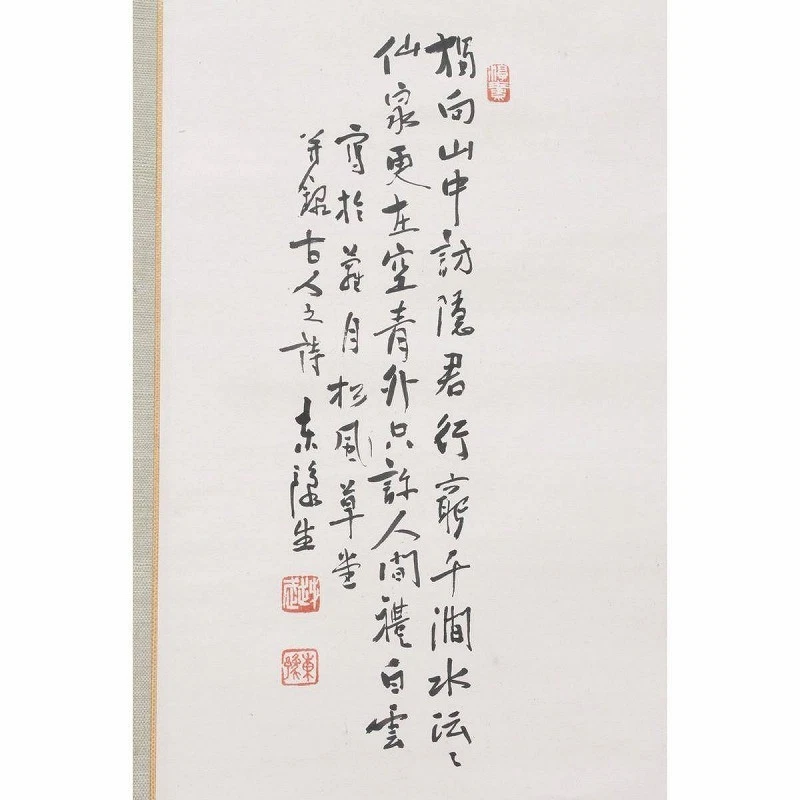 獨向山中訪隱君行窮千澗水沄〻
仙家更在空青外只許人間禮白雲
寫於蘿月松風草堂
并錄古人之詩 東陽生